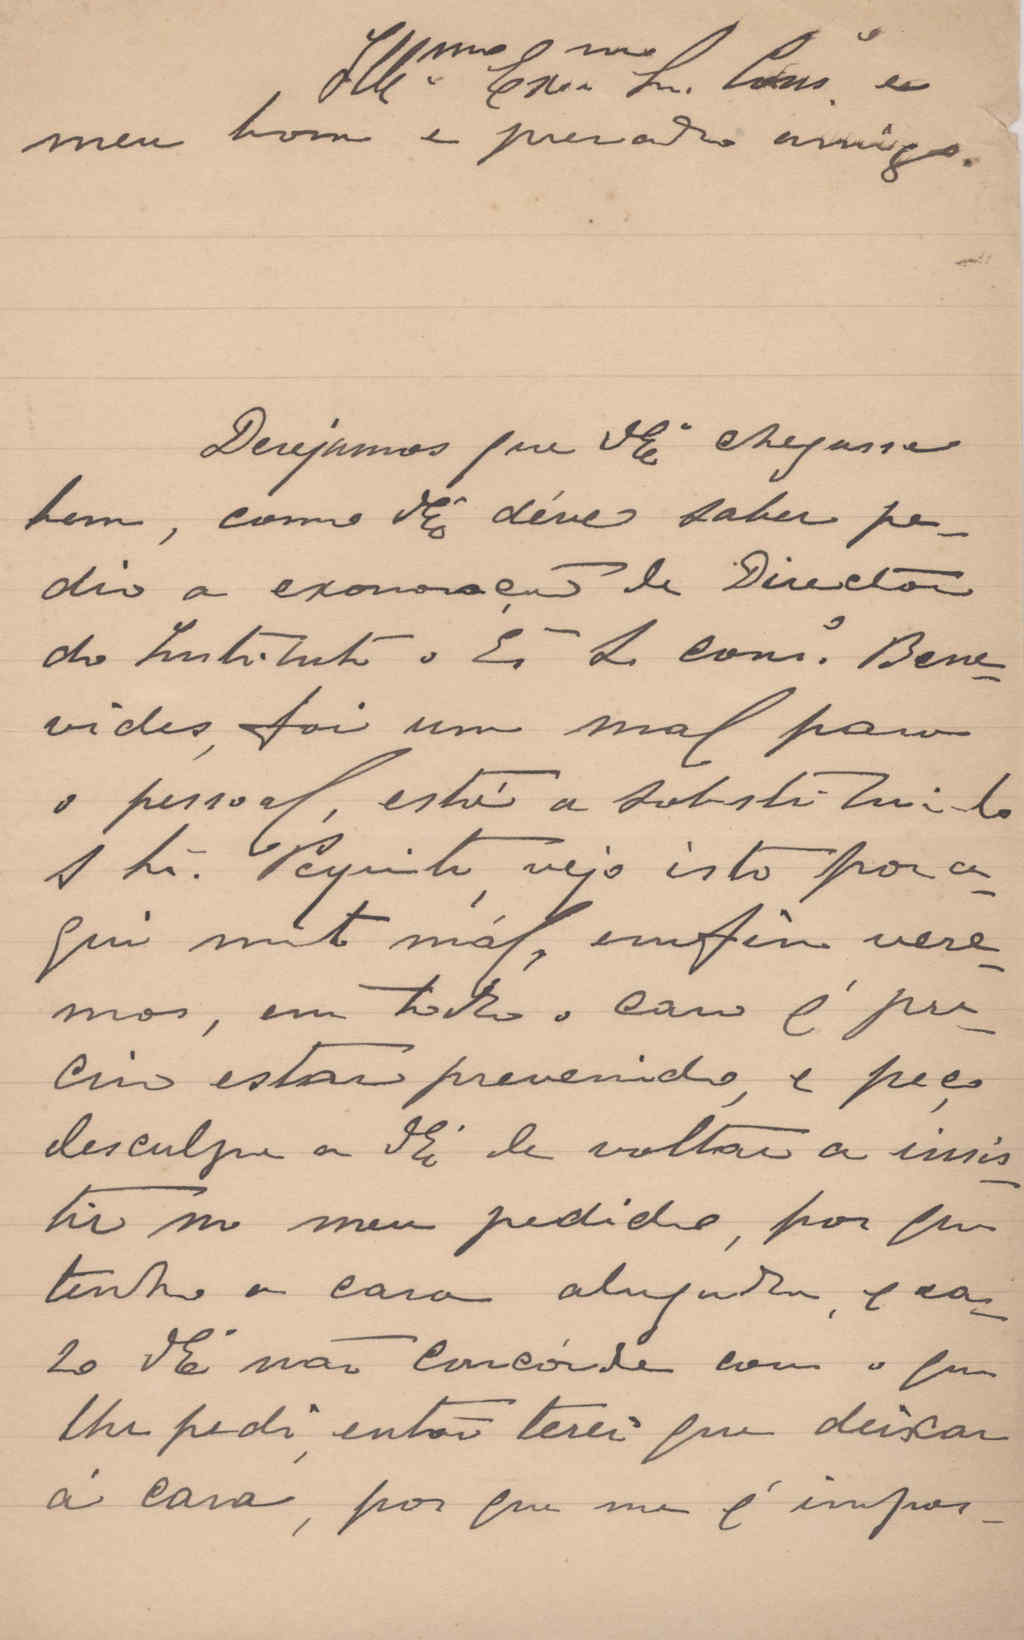 Illmo Exmo Sr. Conso e
meu bom e presado amigo.
Desejamos que VEa chegasse
bem, como VEa déve saber pe-
dio a exoneração de Director
do Instituto o Eo Sr Conso. Bene-
vides, foi um mal para
o pessoal, está a substitui-lo
o Sr. Pequito, vejo isto por a-
qui muito mál, emfim vere-
mos, em todo o caso é pre-
ciso estar prevenido, e peço
desculpa a VEa de voltar a insis-
tir no meu pedido, por que
tenho a casa alugada, e ca-
zo VEa não concórde com o que
lhe pedi, então terei que deixar
á casa, por que me é impos-